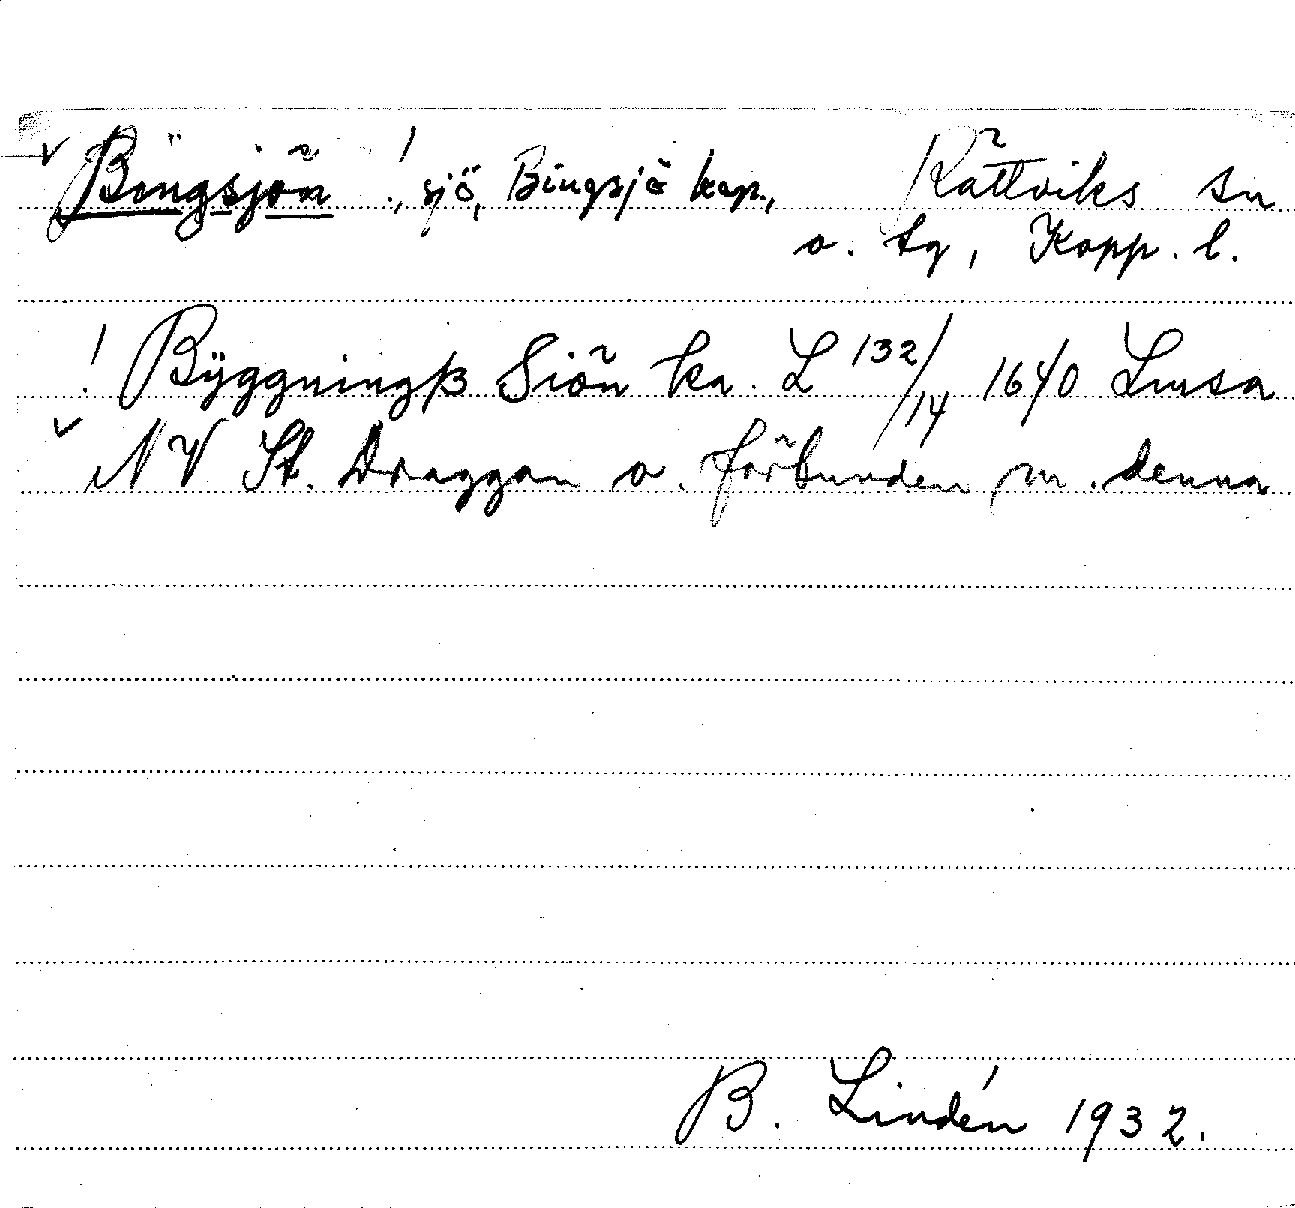 Bingsjön !, sjö, Bingsjö kap., Rättviks sn
o. tg, Kopp. l.
! Byggningß Siön ka. L 132/14 1640 Linsa
NV St. Draggan o. förbunden m. denna
B. Lindén 1932.